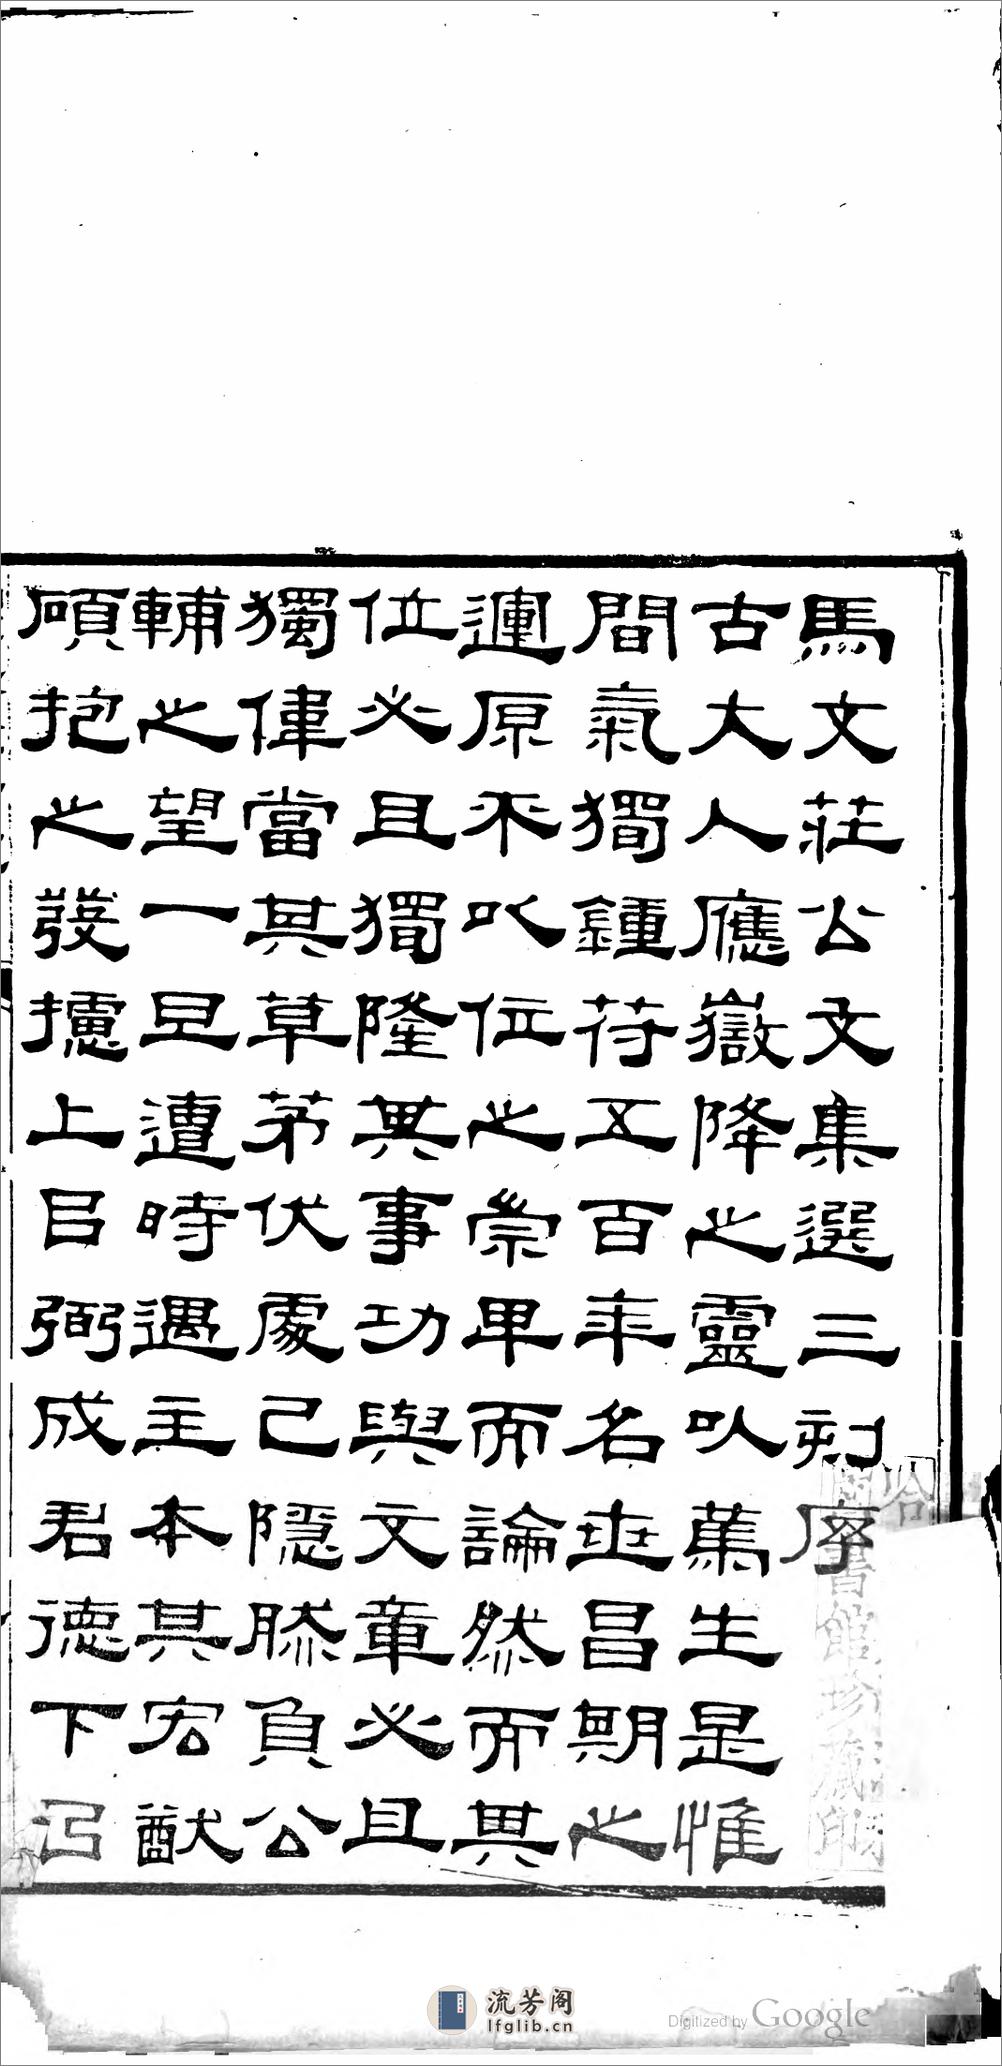 馬文莊公文集選三刻序
古大人應嶽降之靈以篤生是惟
間氣獨鍾待五百年名世昌期之
運原不以位之崇卑而論然而異
位必且獨隆異事功與文章必且
獨偉當其草茅伏處己隱肰負公
輔之望一旦遭時遇主本其宏猷
碩抱之發攄上㠯弼成君德下㠯
哈
圖書館珍藏印
流芳阁
lfglib.cn
Digitized by Google